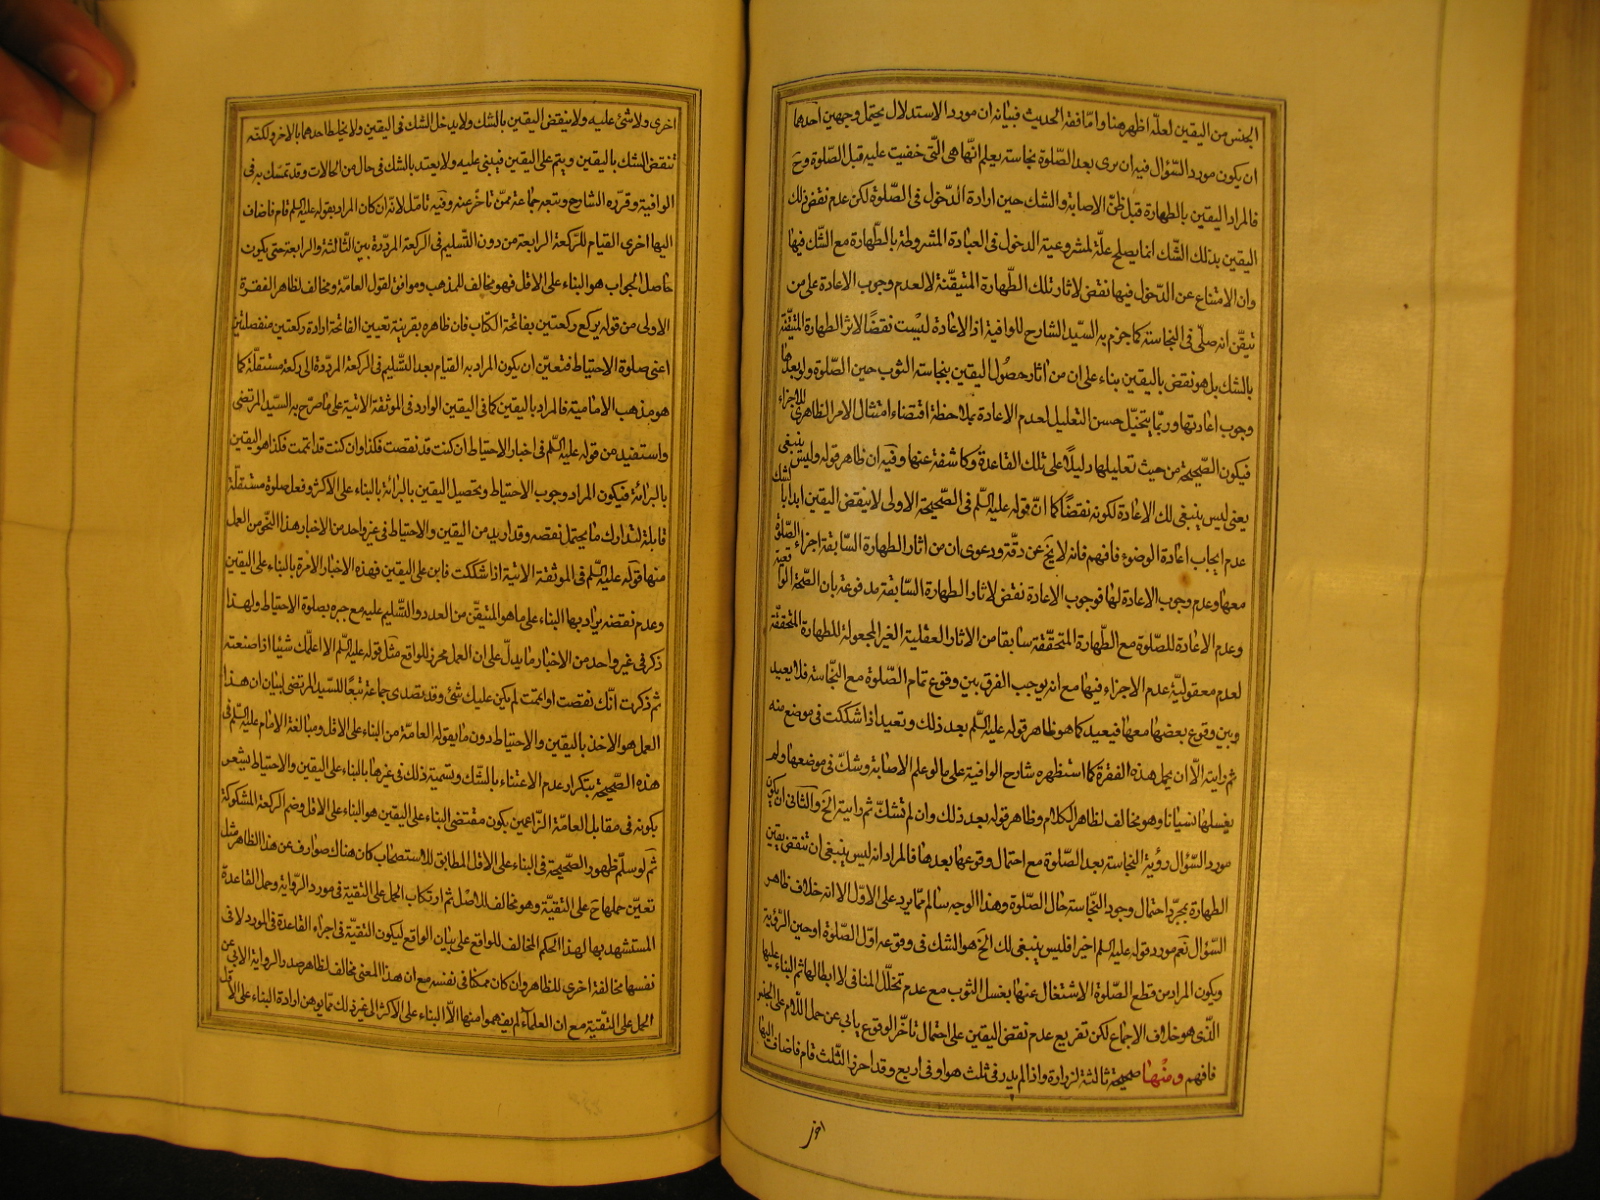 الجنس من اليقين لعلّه اظهر هنا وامّا فقه الحديث فبيانه ان مورد الاستدلال يحتمل وجهين احدهما
ان يكون مورد السّؤال فيه ان يرى بعد الصّلوة نجاسة يعلم انّها هى الّتى خفيت عليه قبل الصّلوة وحَ
فالمراد اليقين بالطهارة قبل ظنّ الاصابة والشك حين ارادة الدّخول فى الصّلوة لكن عدم نقض ذلك
اليقين بذلك الشّك انما يصلح علّة لمشروعية الدخول فى العبادة المشروطة بالطّهارة مع الشّك فيها
وان الامتناع عن الدّخول فيها نقض لاثار تلك الطّهارة المتيقّنة لا لعدم وجوب الاعادة على من
تيقّن انه صلّى فى النجاسة كما جزم به السيّد الشارح للوافية اذ الاعادة ليست نقضًا لاثر الطهارة المتيقّنة
بالشك بل هو نقض باليقين بناء على ان من اثار حصُول اليقين بنجاسة الثوب حين الصّلوة ولو بعدها
وجوب اعادتها وربّما يتخيّل حسن التعليل لعدم الاعادة بملاحظة اقتضاء امتثال الامر الظاهرى للاجزاء
فيكون الصّحيحة من حيث تعليلها دليلًا على تلك القاعدة وكاشفة عنها وفيه ان ظاهر قوله وليس ينبغى
يعنى ليس ينبغى لك الاعادة لكونه نقضًا كما انّ قوله عليه السّلم فى الصّحيحة الاولى لا ينقض اليقين ابدا بالشك
عدم ايجاب اعادة الوضوء فافهم فانه لا يخ عن دقّة ودعوى ان من اثار الطهارة السّابقة اجزاء الصّلوة
معها وعدم وجوب الاعادة لها فوجوب الاعادة نقض لاثار الطهارة السّابقة مدفوعة بان الصّحة الواقعية
وعدم الاعادة للصّلوة مع الطّهارة المتحقّقة سابقا من الاثار العقلية الغير المجعولة للطهارة المتحققّة
لعدم معقوليّة عدم الاجزاء فيها مع انه يوجب الفرق بين وقوع تمام الصّلوة مع النّجاسة فلا يعيد
وبين وقوع بعضها معها فيعيد كما هو ظاهر قوله عليه السّلم بعد ذلك وتعيد اذا شككت فى موضع منه
ثم رايته الّا ان يحمل هذه الفقرة كما استظهره شارح الوافية على ما لو علم الاصابة وشكّ فى موضعها ولم
يغسلها نسيانا وهو مخالف لظاهر الكلام وظاهر قوله بعد ذلك وان لم تشكّ ثم رايته الخ والثانى ان يكون
مورد السّؤال رؤية النجاسة بعد الصّلوة مع احتمال وقوعها بعدها فالمراد انه ليس ينبغى ان تنقض يقين
الطهارة بمجرّد احتمال وجود النّجاسة حال الصّلوة وهذا الوجه سالم ممّا يرد على الاوّل الا انه خلاف ظاهر
السّؤال نعم مورد قوله عليه السلم اخيرا فليس ينبغى لك الخَ هو الشك فى وقوعه اوّل الصّلوة او حين الرّؤية
ويكون المراد من قطع الصّلوة الاشتغال عنها بغسل الثوب مع عدم تخلّل المنافى لا ابطالها ثم البناء عليها
الذى هو خلاف الاجماع لكن تفريع عدم نقض اليقين على احتمال تاخّر الوقوع يابى عن حمل اللّام على الجنس
فافهم ومنها صحيحة ثالثة لزرارة واذا لم يدر فى ثلث هو او فى اربع وقد احرز الثّلث قام فاضاف اليها
اخرى
اخرى ولا شئ عليه ولا ينقض اليقين بالشك ولا يدخل الشك فى اليقين ولا يخلط احدهما بالاخر ولكنّه
تنقض الشك باليقين ويتم على اليقين فيبنى عليه ولا يعتد بالشك فى حال من الحالات وقد تمسّك به فى
الوافية وقرّره الشارح وتبعه جماعة ممّن تاخّر عنه وفيه تامّل لانّه ان كان المراد بقوله عليه السلم قام فاضاف
اليها اخرى القيام للرّكعة الرابعة من دون التّسليم فى الركعة المردّدة بين الثّالثة والرابعة حتى يكون
حاصل الجواب هو البناء على الاقل فهو مخالف للمذهب وموافق لقول العامّة ومخالف لظاهر الفقرة
الاولى من قوله يركع ركعتين بفاتحة الكتاب فان ظاهره بقرينة تعيين الفاتحة ارادة ركعتين منفصلتين
اعنى صلوة الاحتياط فتعيّن ان يكون المراد به القيام بعد التّسليم فى الركعة المردّدة الى ركعة مستقلّة كما
هو مذهب الامامية فالمراد باليقين كما فى اليقين الوارد فى الموثقة الاتية على ما صرّح به السيّد المرتضى
واستفيد من قوله عليه السّلم فى اخبار الاحتياط ان كنت قد نقصت فكذا وان كنت قد اتممت فكذا هو اليقين
بالبرائة فيكون المراد وجوب الاحتياط وتحصيل اليقين بالبرائة بالبناء على الاكثر وفعل صلوة مستقلّة
قابلة لتدارك ما يحتمل نقصه وقد اريد من اليقين والاحتياط فى غير واحد من الاخبار هذا النّحو من العمل
منها قوله عليه السّلم فى الموثقة الاتية اذا شككت فابن على اليقين فهذه الاخبار الامرة بالبناء على اليقين
وعدم نقضه يراد بها البناء على ما هو المتيقّن من العدد والتّسليم عليه مع جبره بصلوة الاحتياط ولهذا
ذكر فى غير واحد من الاخبار ما يدلّ على ان العمل محرز للواقع مثل قوله عليه السّلم الا اعلّمك شيئا اذا صنعته
ثم ذكرت انّك نقصت او اتممت لم يكن عليك شئ وقد تصدى جماعة تبعًا للسّيد المرتضى لبيان ان هذا
العمل هو الاخذ باليقين والاحتياط دون ما يقوله العامّة من البناء على الاقل ومبالغة الامام عليه السّلم فى
هذه الصّحيحة بتكرار عدم الاعتناء بالشّك وتسمية ذلك فى غيرها بالبناء على اليقين والاحتياط يشعر
بكونه فى مقابل العامّة الزّاعمين بكون مقتضى البناء على اليقين هو البناء على الاقل وضم الركعة المشكوكة
ثم لو سلّم ظهور الصّحيحة فى البناء على الاقل المطابق للاستصحاب كان هناك صوارف عن هذا الظاهر مثل
تعيّن حملها حَ على التقيّة وهو مخالف للاصل ثم ارتكاب الحمل على التقية فى مورد الرّواية وحمل القاعدة
المستشهد بها لهذا الحكم المخالف للواقع على بيان الواقع ليكون التقيّة فى اجراء القاعدة فى المورد لا فى
نفسها مخالفة اخرى للظاهر وان كان ممكنا فى نفسه مع ان هذا المعنى مخالف لظاهر صدر الرواية الابى عن
الحمل على التّقية مع ان العلماء لم يفهموا منها الّا البناء على الاكثر الى غير ذلك ممّا يوهن ارادة البناء على الاقل